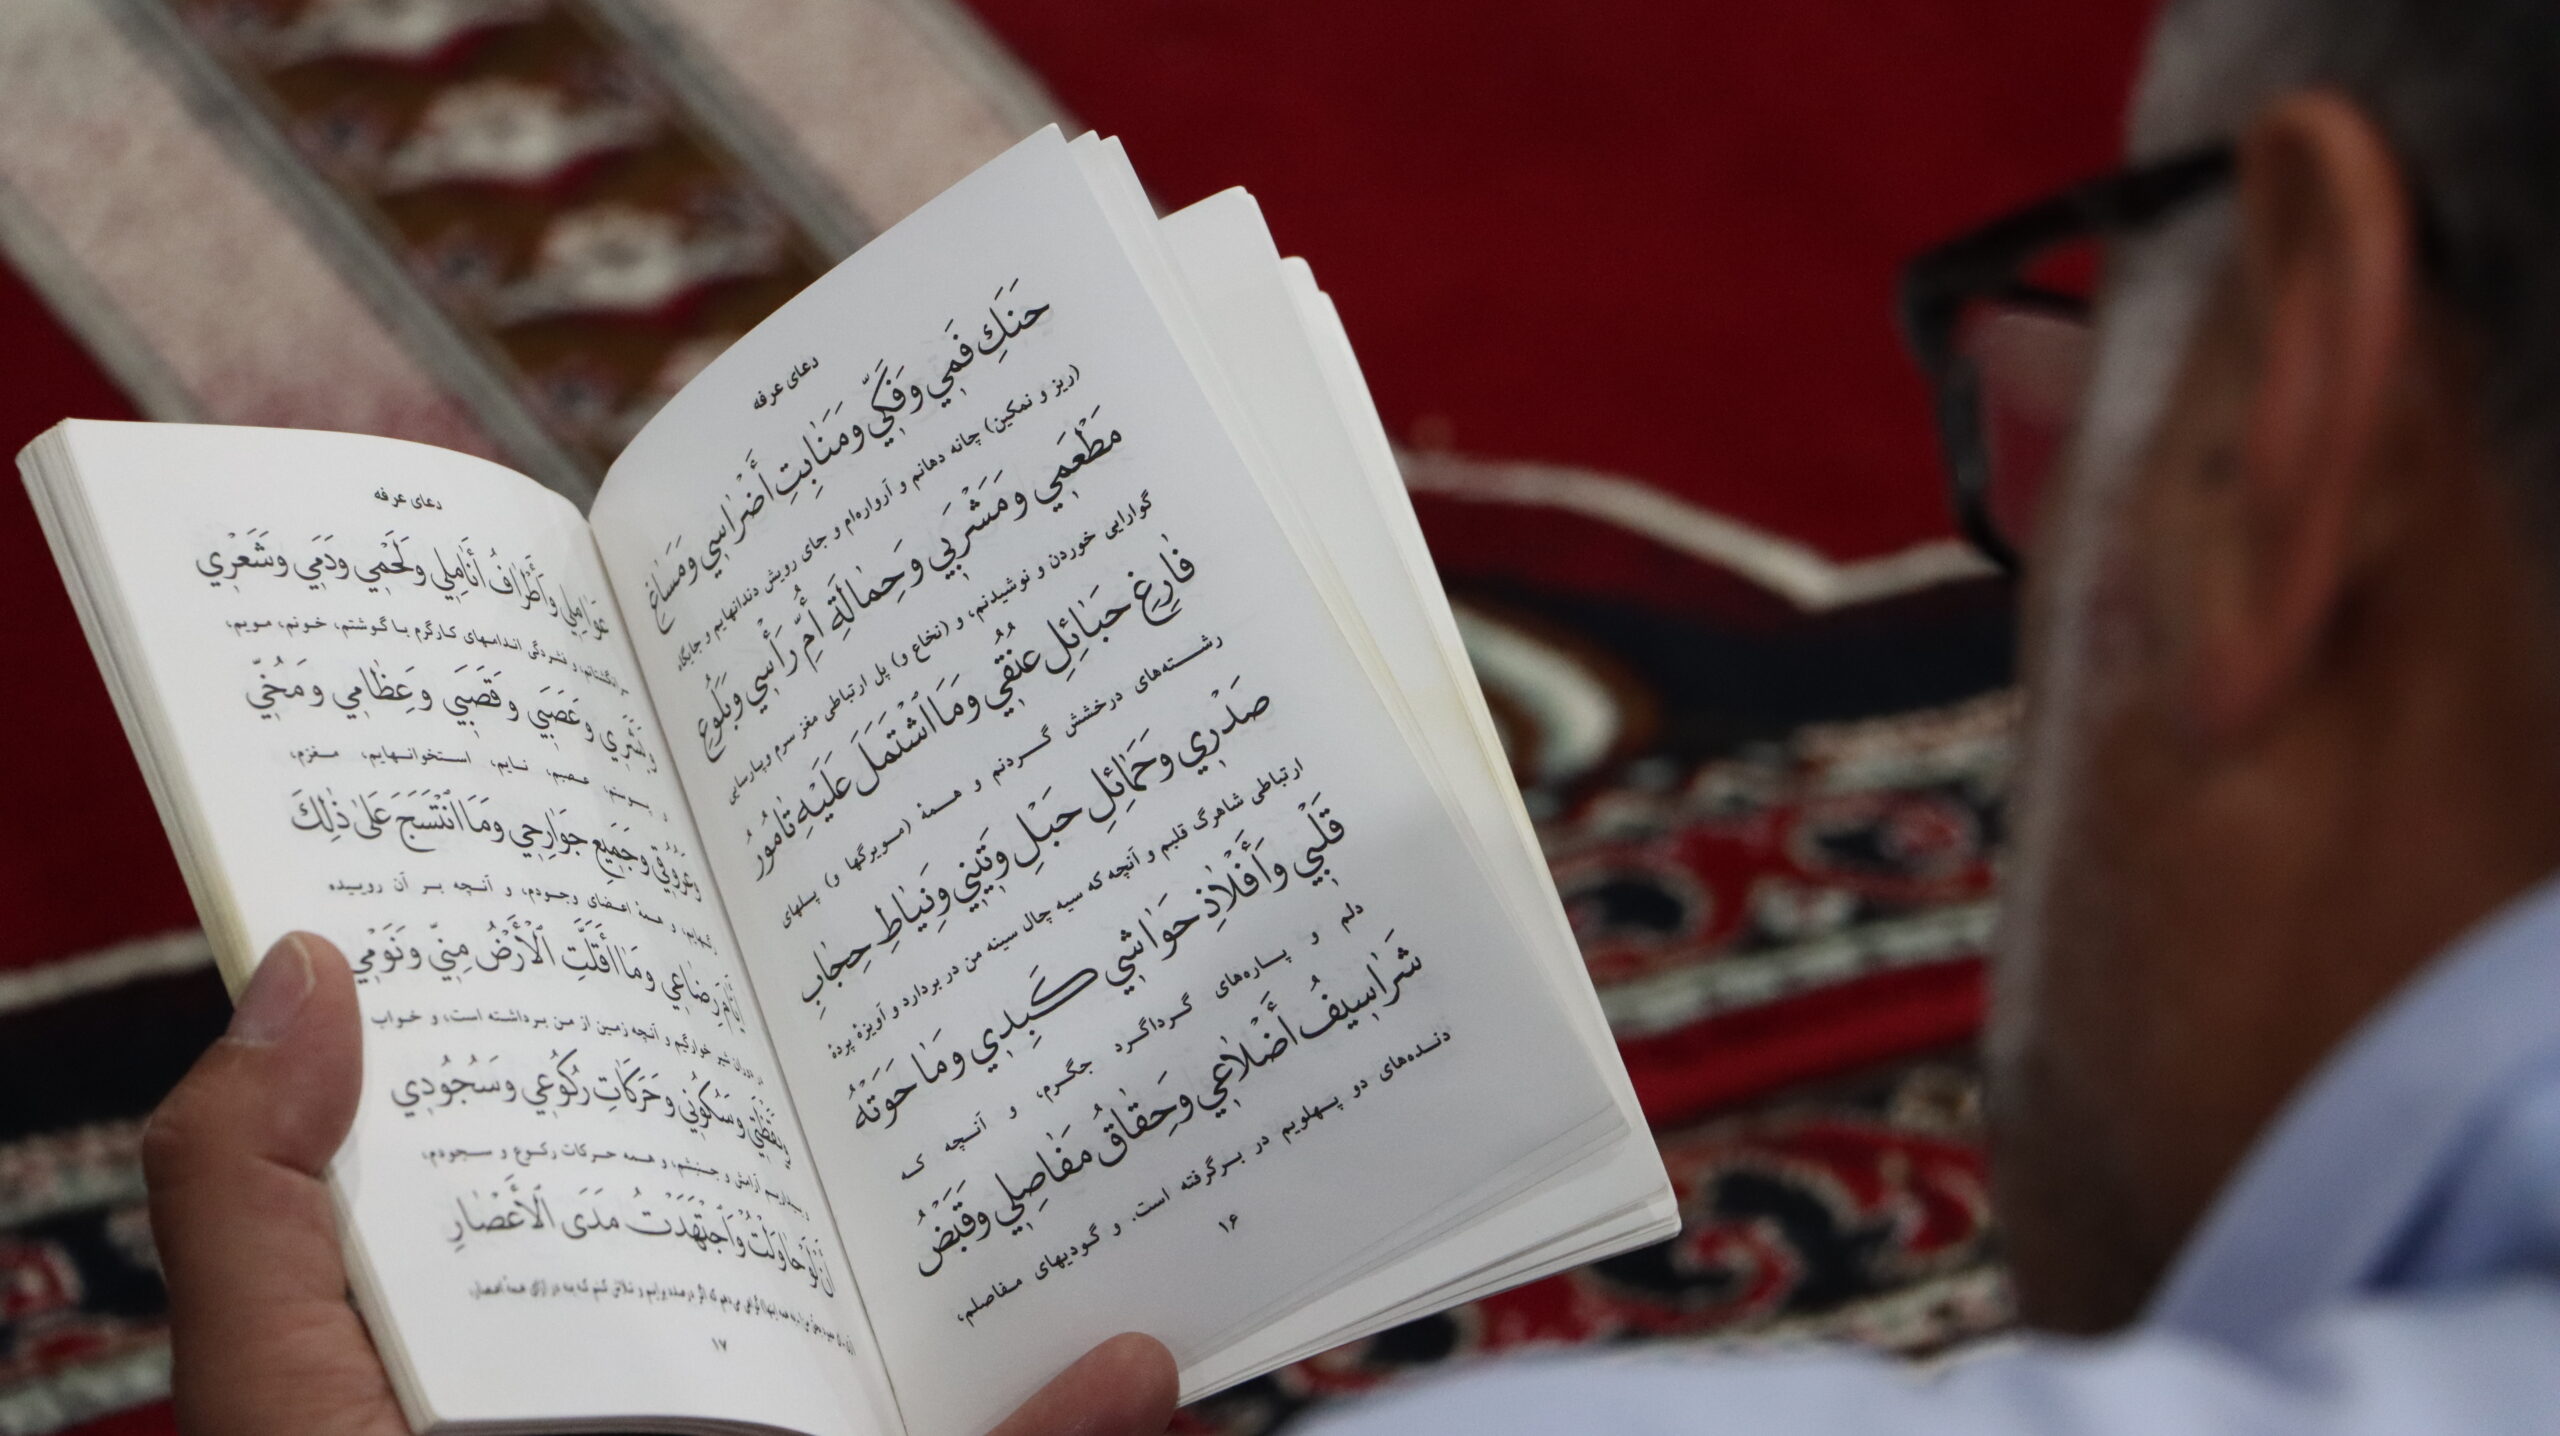 دعای عرفه
حَنَكِ فَمِي وَفَكِّي وَمَنَابِتِ أَضْرَاسِي وَمَسَاغِ
(ریز و نمکین) چانه دهانم و آرواره‌ام و جای رویش دندانهایم و جایگاه
مَطْعَمِي وَمَشْرَبِي وَحِمَالَةِ أُمِّ رَأْسِي وَبَلُوعِ
گوارایی خوردن و نوشیدنم، و (نخاع و) پل ارتباطی مغز سرم و پارسایی
فَارِغِ حَبَائِلِ عُنُقِي وَمَا اشْتَمَلَ عَلَيْهِ تَامُورُ
رشته‌های درخشش گردنم و همهٔ (مویرگها و) پلهای
صَدْرِي وَحَمَائِلِ حَبْلِ وَتِينِي وَنِيَاطِ حِجَابِ
ارتباطی شاهرگ قلبم و آنچه که سیه چال سینه من در بردارد و آویزهٔ پردهٔ
قَلْبِي وَأَفْلَاذِ حَوَاشِي كَبِدِي وَمَا حَوَتْهُ
دلم و پاره‌های گرداگرد جگرم، و آنچه که
شَرَاسِيفُ أَضْلَاعِي وَحِقَاقُ مَفَاصِلِي وَقَبْضُ
دنده‌های دو پهلویم در برگرفته است. و گودیهای مفاصلم،
۱۶
دعای عرفه
عَوَامِلِي وَأَطْرَافُ أَنَامِلِي وَلَحْمِي وَدَمِي وَشَعْرِي
اندامهای کارگرم با گوشتم، خونم، مویم،
وَبَشَرِي وَعَصَبِي وَقَصَبِي وَعِظَامِي وَمُخِّي
پوستم، عصبم، نایم، استخوانهایم، مغزم،
وَعُرُوقِي وَجَمِيعِ جَوَارِحِي وَمَا انْتَسَجَ عَلَىٰ ذَٰلِكَ
رگهایم، و همهٔ اعضای وجودم، و آنچه بر آن روییده
أَيَّامَ رِضَاعِي وَمَا أَقَلَّتِ الْأَرْضُ مِنِّي وَنَوْمِي
دوران شیر خوارگیم و آنچه زمین از من برداشته است، و خواب
وَيَقَظَتِي وَسُكُونِي وَحَرَكَاتِ رُكُوعِي وَسُجُودِي
و بیداریم آرامش و جنبشم، و همه حرکات رکوع و سجودم،
أَنْ لَوْ حَاوَلْتُ وَاجْتَهَدْتُ مَدَى الْأَعْصَارِ
۱۷